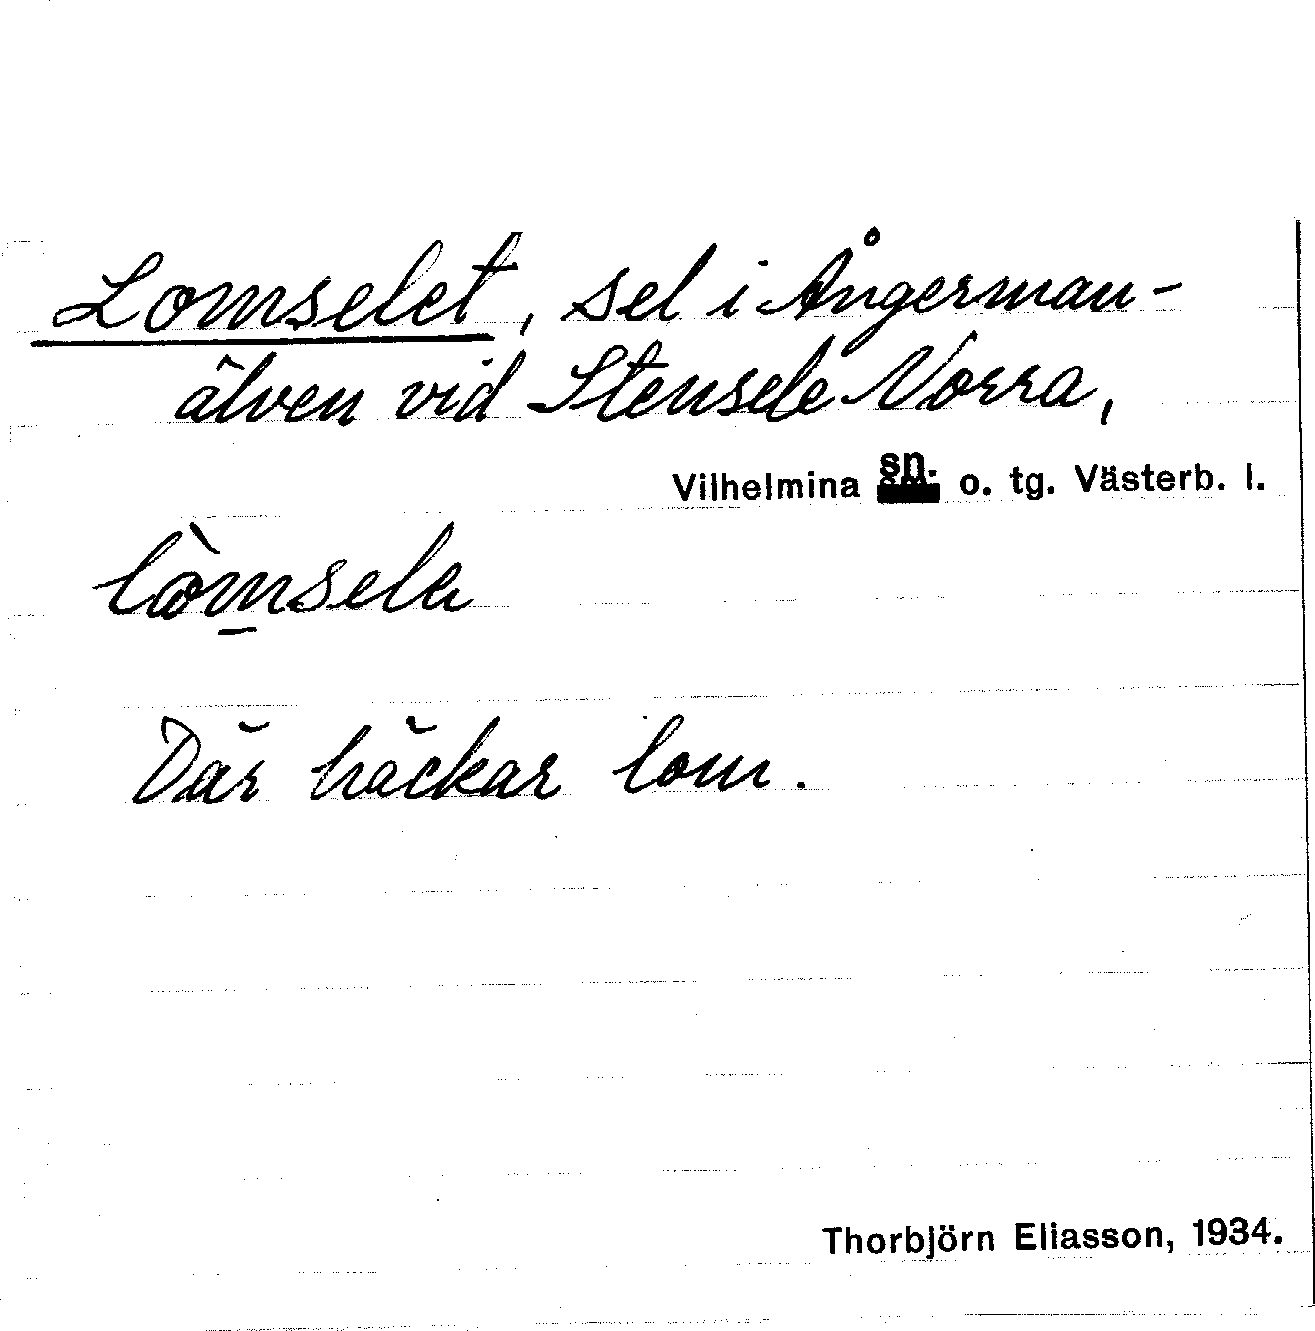 Lomselet, sel i Ångerman-
älven vid Stensele Norra,
Vilhelmina sn. o. tg. Västerb. l.
lòm̲sela
Där häckar lom.
Thorbjörn Eliasson, 1934.